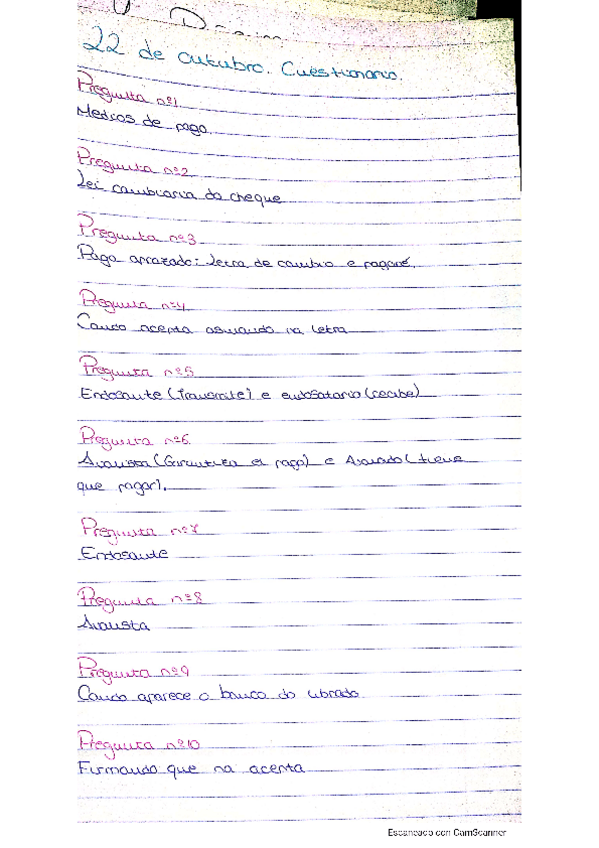 22 de outubro. Cuestionario.
Pregunta nº1
Medios de pago.
Pregunta nº2
Lei cambiaria do cheque
Pregunta nº3
Pago aprazado: letra de cambio e pagaré.
Pregunta nº4
Cando acepta asinando na letra
Pregunta nº5
Endosante (transmite) e endosatario (recibe)
Pregunta nº6
Avalista (Garantiza el pago) e Avalado (tiene
que pagar).
Pregunta nº7
Endosante
Pregunta nº8
Avalista
Pregunta nº9
Cando aparece o banco do librado
Pregunta nº10
Firmando que na acepta
Escaneado con CamScanner